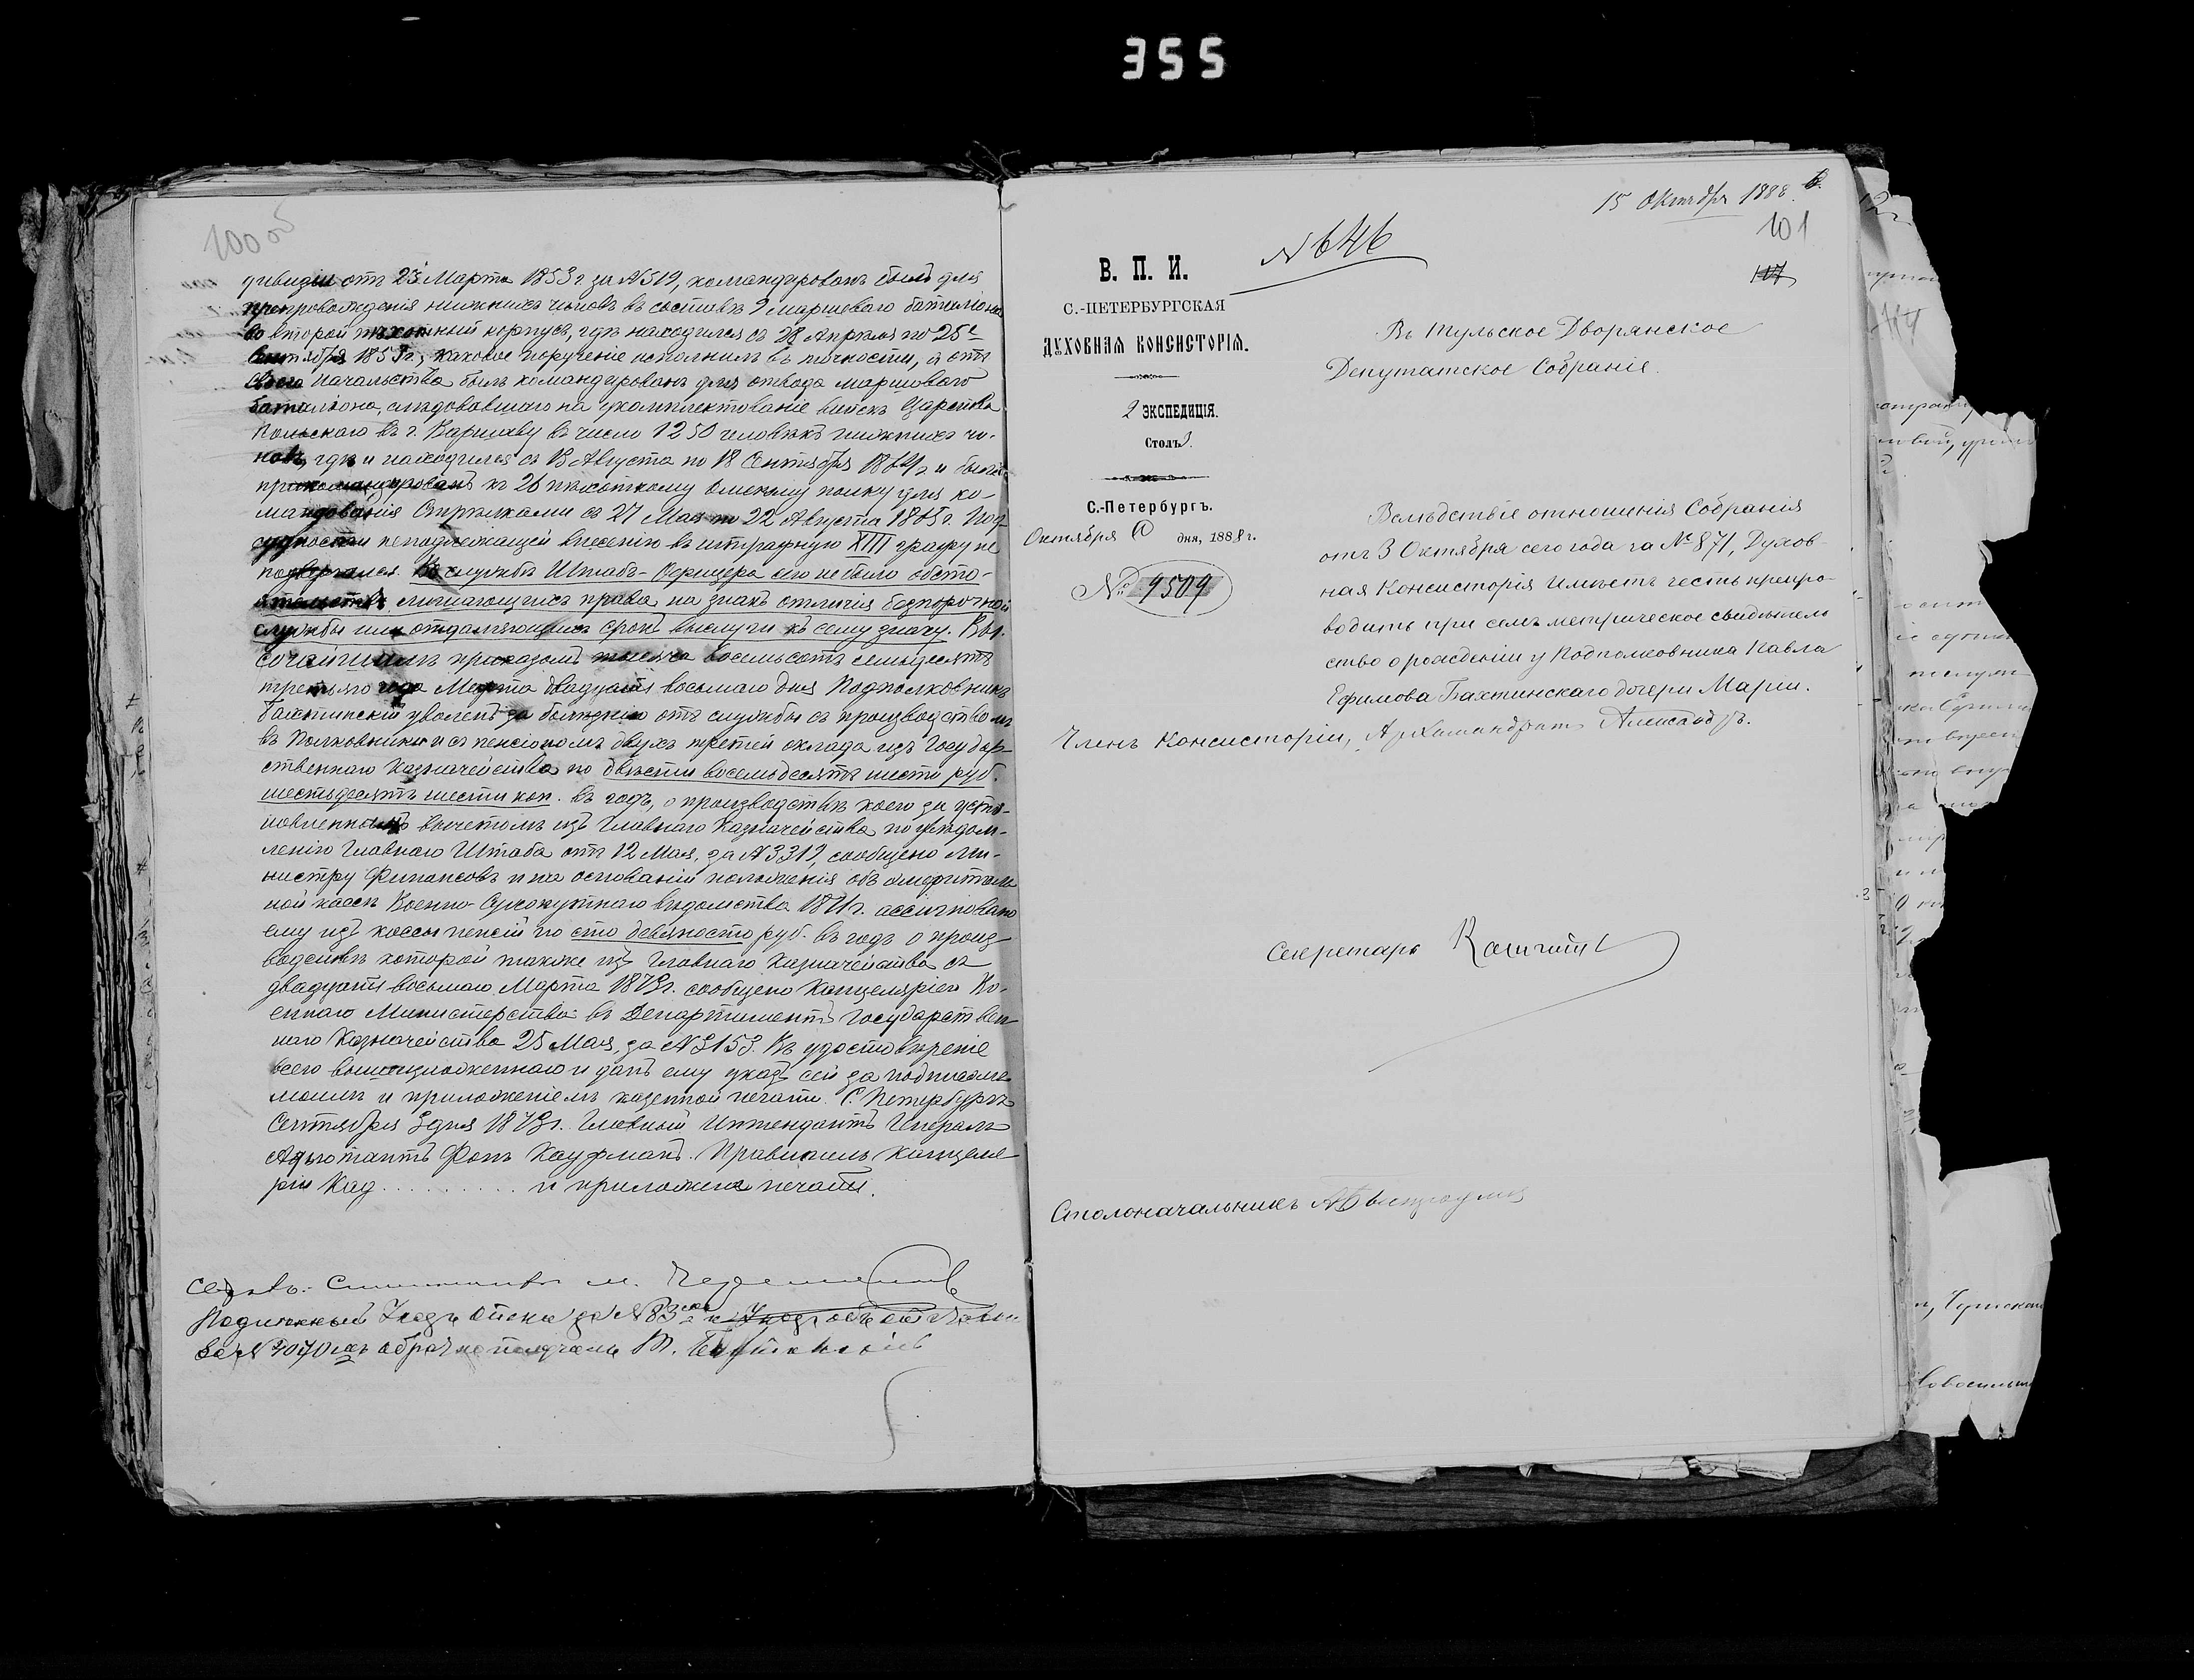 355
100 об
дивизіи отъ 23 Марта 1853 г. за №519, командированъ былъ для
препровожденія нижнихъ чиновъ въ составѣ 9 маршеваго баталіона
во второй пѣхотный корпусъ, гдѣ находился съ 28 Апрѣля по 25е
Сентября 1853 г., каковое порученіе исполнилъ въ точности, а отъ
своего начальства былъ командированъ для отвода маршоваго
баталіона, слѣдовавшаго на укомплектованіе войскъ Царства
Польскаго въ г. Варшаву въ числѣ 1250 человѣкъ нижнихъ чи-
новъ, гдѣ и находился съ 13 Августа по 18 Сентября 1864 г. и былъ
прикомандированъ къ 26 пѣхотному полку для ко-
мандованія Стрѣлками съ 27 Мая по 22 Августа 1865 г. Под-
судности неподлежащей внесенію въ штрафную XIII графу не
подвергался. Въ службѣ Штабъ-Офицера сего не было обсто-
ятельствъ лишающихъ права на знакъ отличія безпорочной
службы или отдаляющихъ срокъ выслуги къ сему знаку. Вы-
сочайшимъ приказомъ тысяча восемьсотъ семьдесятъ
третьяго года Марта двадцать восьмаго дня Подполковникъ
Бахтинскій уволенъ за болѣзнію отъ службы съ производствомъ
въ Полковники и съ пенсіономъ двухъ третей оклада изъ Государ-
ственнаго Казначейства по двѣсти восемьдесятъ шести руб.
шестьдесятъ шести коп. въ годъ, о производствѣ коего за уста-
новленнымъ вычетомъ изъ Главнаго Казначейства по увѣдом-
ленію Главнаго Штаба отъ 12 Мая, за №3319, сообщено Ми-
нистру Финансовъ и на основаніи положенія объ эмеритель
ной кассѣ Военно-Сухопутнаго вѣдомства 1871 г. ассигновано
ему изъ кассы пенсіи по сто девяносто руб. въ годъ о произ-
водствѣ которой также изъ Главнаго Казначейства съ
двадцать восьмаго Марта 1873 г. сообщено Канцеляріею Во-
еннаго Министерства въ Департаментъ Государствен-
наго Казначейства 25 Мая, за №3153. Въ удостовѣреніе
всего вышеизложеннаго и данъ ему указъ сей за подписомъ
моимъ и приложеніемъ казенной печати. С. Петербургъ
Сентября 3 дня 1873 г. Главный Интендантъ Генералъ
Адъютантъ Фонъ Кауфманъ. Правитель Канцеля
ріи Кад......... и приложена печать.
Подлинный Указъ за №83
обратно получилъ
15 Октября 1888
101
107
№ 646
В. П. И.
С.-ПЕТЕРБУРГСКАЯ
ДУХОВНАЯ КОНСИСТОРІЯ.
2 ЭКСПЕДИЦІЯ.
Столъ
С.-Петербургъ.
Октября дня, 1888 г.
№ 4509
Въ Тульское Дворянское
Депутатское Собраніе.
Вслѣдствіе отношенія Собранія
отъ 3 Октября сего года за № 871, Духов-
ная Консисторія имѣетъ честь препро-
водить при семъ метрическое свидѣтель
ство о рожденіи у Подполковника Павла
Ефимова Бахтинскаго дочери Маріи.
Членъ Консисторіи, Архимандритъ Александръ.
Секретарь
Столоначальникъ